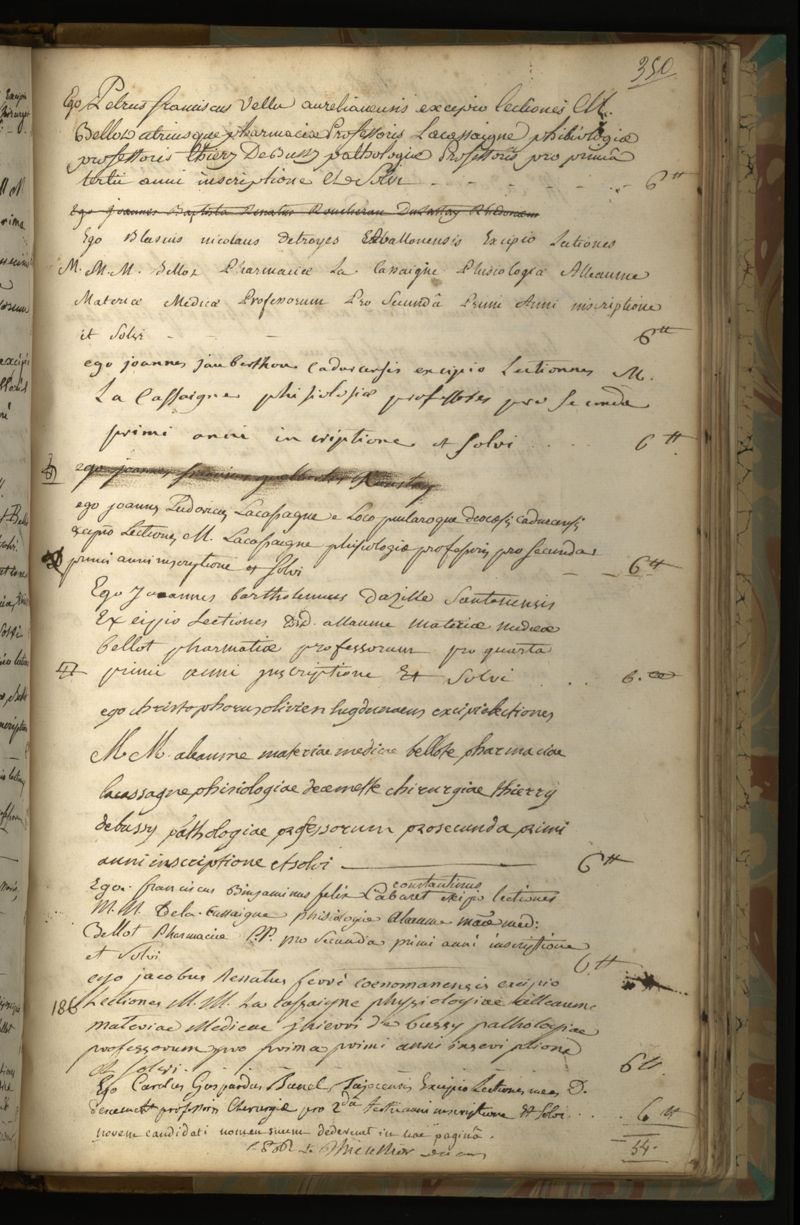 350
Ego Petrus franciscus Vellu aurelianensis excipio lectiones M.
Bellot utriusque pharmaciæ Professoris Lacassaigne phisiologiæ
professoris thiery De Bussy pathologiæ Professoris pro primâ
tertii anni inscriptione et Solvi - - - - - - 6 tt
Ego Joannes Baptista Renatus
Ego Blasius nicolaus detroyes Excipio Lectiones
M. M. M. Bellot Pharmaciæ La Cassaigne Phisiologiæ Alleaume
Materiæ Medicæ Professorum Pro Secundâ Primi Anni inscriptione
et Solvi - - - 6 tt
ego joannes jauberthou cadurcensis excipio Lectionnes M.
La Cassaigne phisiologiæ professores pro secunda
primi anni incriptione et solvi . . . . 6 tt
ego joannes
ego joannes Ludovicus Lacassagne e Loco diocesis caducensis
excipio Lectiones M. Lacassaigne phisiologiæ professoris pro secunda
primi anni inscriptione et Solvi - - 6 tt
Ego Joannes bartholemeus dazille Santonensis
Excipio Lectiones D.D. alleaume materiæ medicæ
bellot pharmatiæ professorum pro quarta
primi anni inscriptione Et Solvi . . 6.
ego christophorus olivier lugdunaeus excipio lectiones
M. M. aleaume materiae medicae bellote pharmaciae
lacassagne phisiologiae decemette chirurgiae thierry
debussy pathologiae professorum pro secunda primi
anni inscriptione et solvi 6 tt
constantinus
Ego franciscus Binjaminus felix Cabaret excipio lectiones
M. M. Dela Cassaigne phisiologiæ aleaume maæ med:
Bellot Pharmaciæ P.P. pro Secunda primi anni inscriptione
et Solvi 6 tt
ego jacobus Renatus ferré coenomanensis excipio
Lectiones M. M. La Cassaigne physiologiae alleaume
materiae Medicae thierri de bussy pathologiae
professorum pro prima primi anni inscriptione
et solvi. - - - - 6 tt
Ego Carolus Gaspardus Excipio Lectiones D.
professoris Chirurgiæ pro 2dâ tertii anni inscriptione Et Solvi . . . 6 tt
novem candidati nomen suum dederunt in hac paginâ. 54.